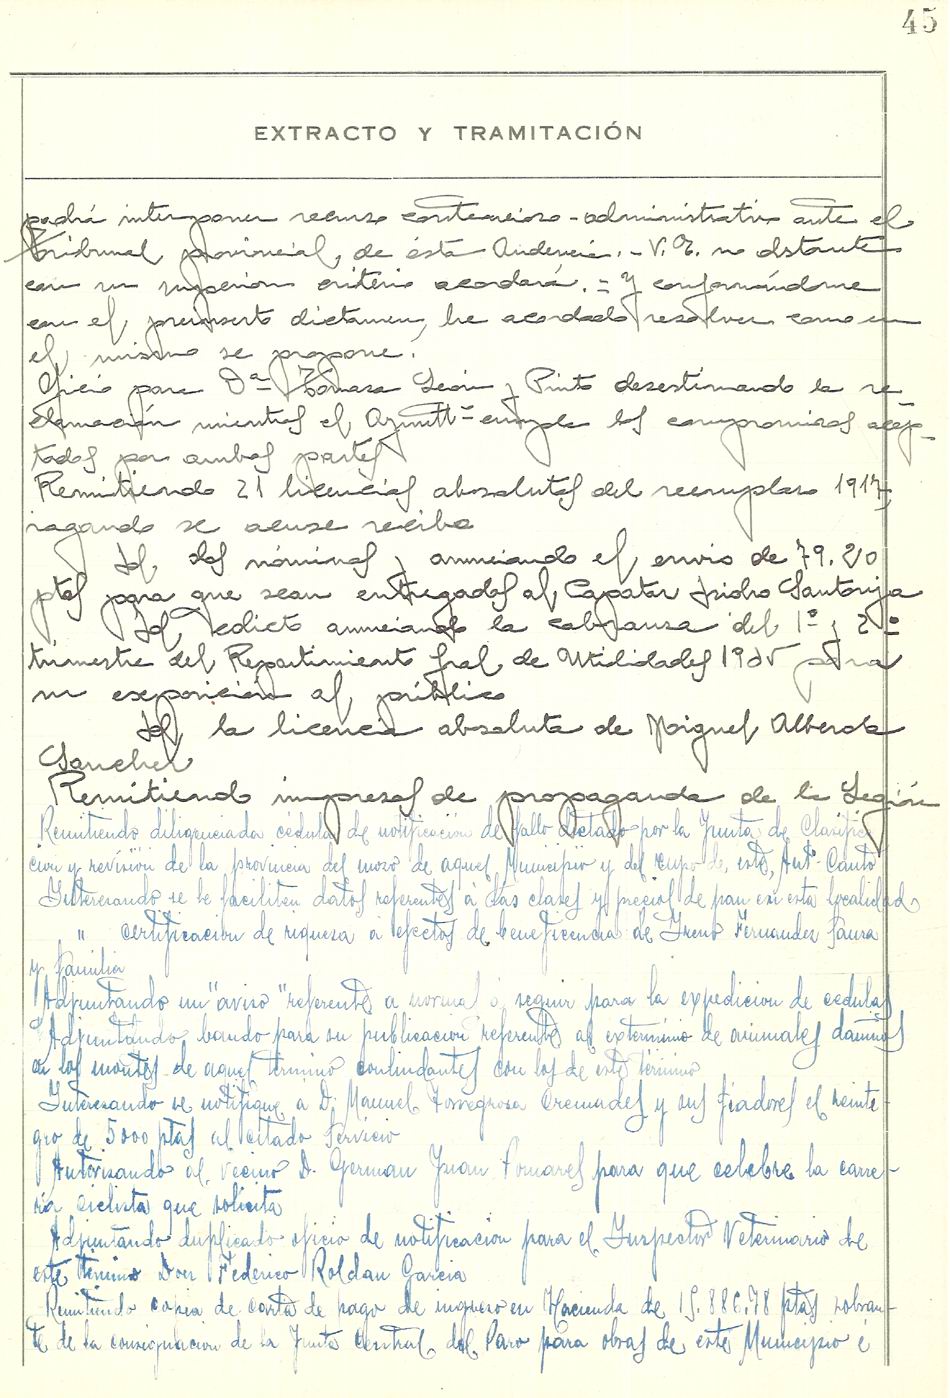 45
EXTRACTO Y TRAMITACIÓN
podrá interponer recurso contencioso-administrativo ante el
Tribunal provincial, de ésta Audencia. - V.E. no obstante
con su superior criterio acordará. = Y conformándome
con el preinserto dictamen, he acordado resolver como en
el mismo se propone.
Oficio para Dª Tomasa León y Pinto desestimando la re
clamación mientras el Aynttº cumpla los compromisos acep-
tados por ambas partes
Remitiendo 21 licencias absolutas del reemplazo 1917,
rogando se acuse recibo
Id dos nóminas y anunciando el envio de 79.20
ptas para que sean entregadas al Capataz Isidro Santonja
Id edicto anunciando la cobranza del 1º y 2º
trimestre del Repartimiento Gral, de Utilidades 1935 para
su exposición al público
Id la licencia absoluta de Miguel Alberola
Sanchez
Remitiendo impresos de propaganda de la Legión
Remitiendo diligenciada cédula de notificación de fallo dictado por la Junta de Clasifica
cion y revisión de la provincia del mozo de aquel Municipio y del cupo de este, Antº Cantó
Interesando se le faciliten datos referentes á las clases y precios de pan en esta localidad
" certificacion de riqueza a efectos de beneficencia de Ireno Fernandez Saura
y familia
Adjuntando un "aviso" referente a normas á seguir para la expedicion de cedulas
Adjuntando bando para su publicacion referente al exterminio de animales dañinos
en los montes de aquel termino conlindantes con los de este termino
Interesando se notifique a D. Manuel Torregrosa Cremades y sus fiadores el reinte-
gro de 5000 ptas al citado Servicio
Autorizando al vecino D. German Juan Pomares para que celebre la carre-
ra ciclista que solicita
Adjuntando duplicado oficio de notificacion para el Inspector Veterinario de
este término Don Federico Roldan Garcia
Remitiendo copia de carta de pago de ingreso en Hacienda de 15.886.78 ptas sobran-
te de la consignacion de la Junta Central del Paro para obras de este Municipio é